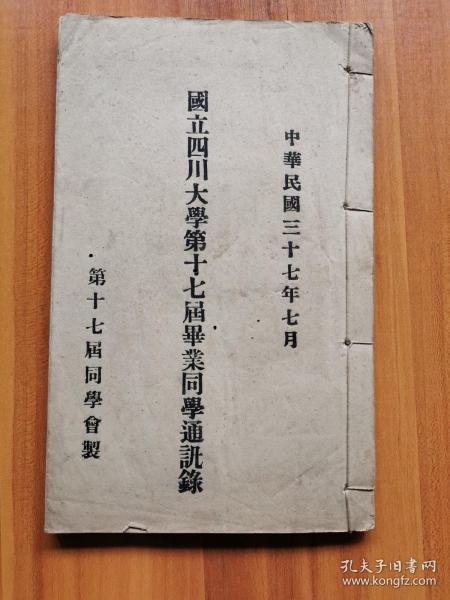 中華民國三十七年七月
國立四川大學第十七屆畢業同學通訊錄
第十七屆同學會製
孔夫子旧书网
www.kongfz.com